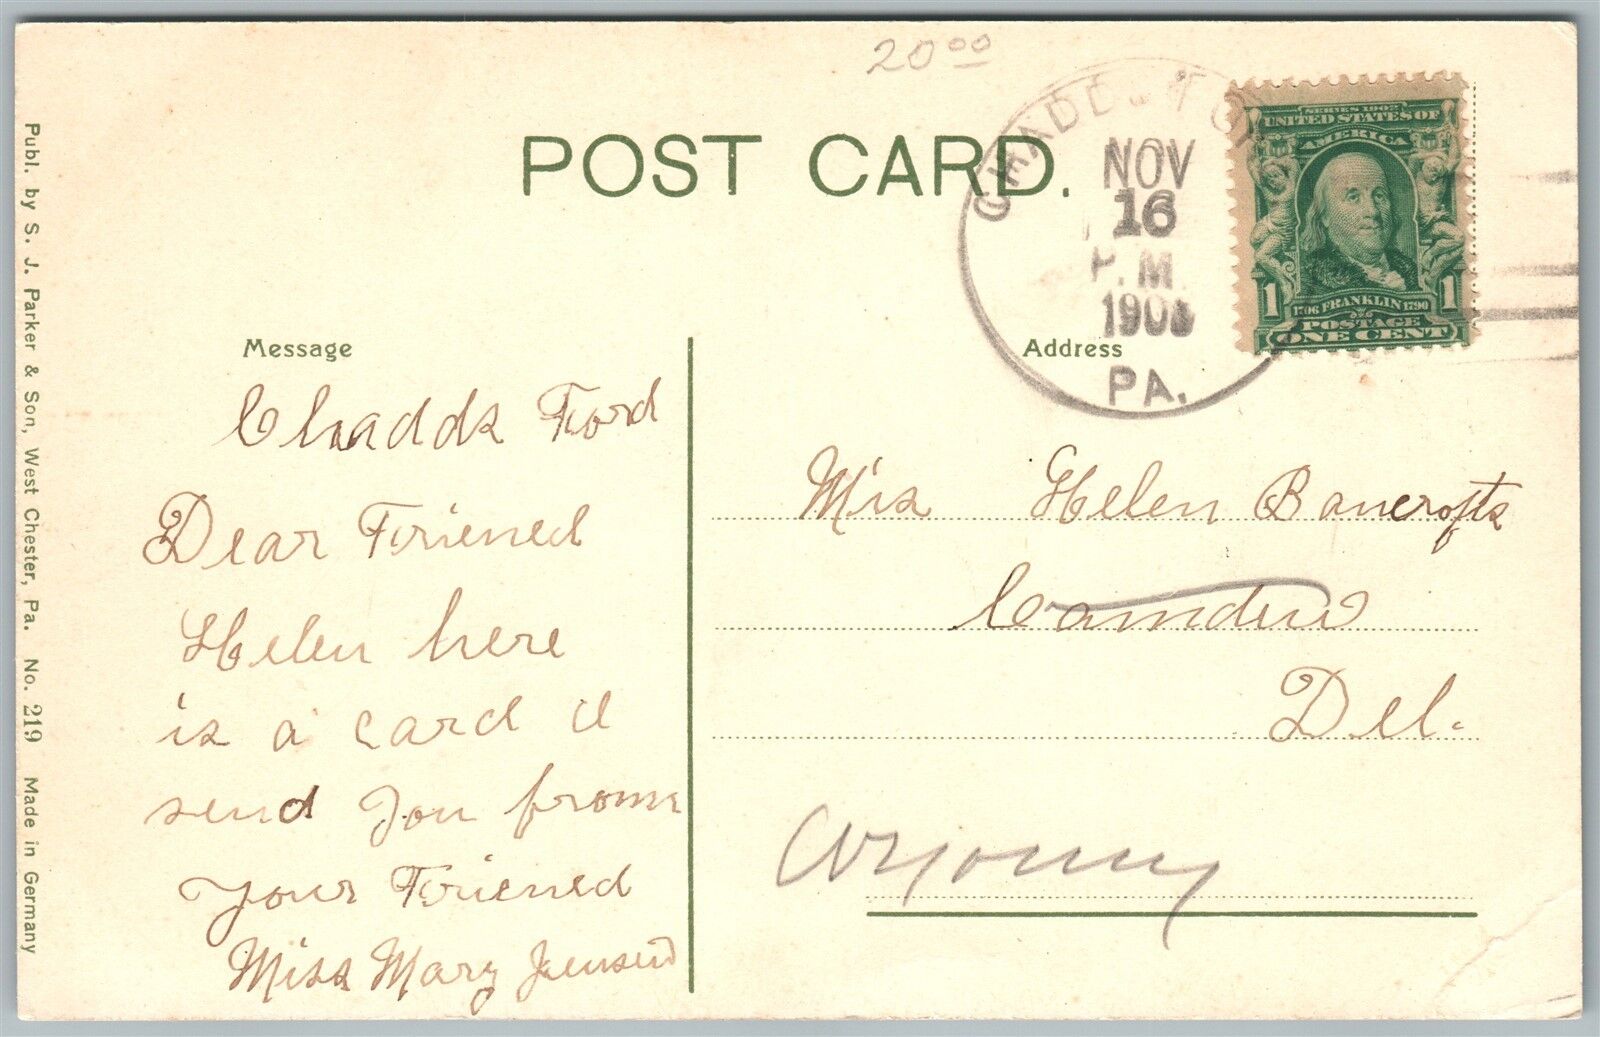 20 00
POST CARD.
NOV
16
P.M.
PA.
SERIES 1902
UNITED STATES OF
AMERICA
1706 FRANKLIN 1790
1 1
POSTAGE
ONE CENT
Publ. by S. J. Parker & Son, West Chester, Pa. No. 219 Made in Germany
Message
Chadds Ford
Dear Friened
Helen here
is a card
send you frome
your Friened
Miss Mary
Address
Miss Helen Bancrofts
Del.